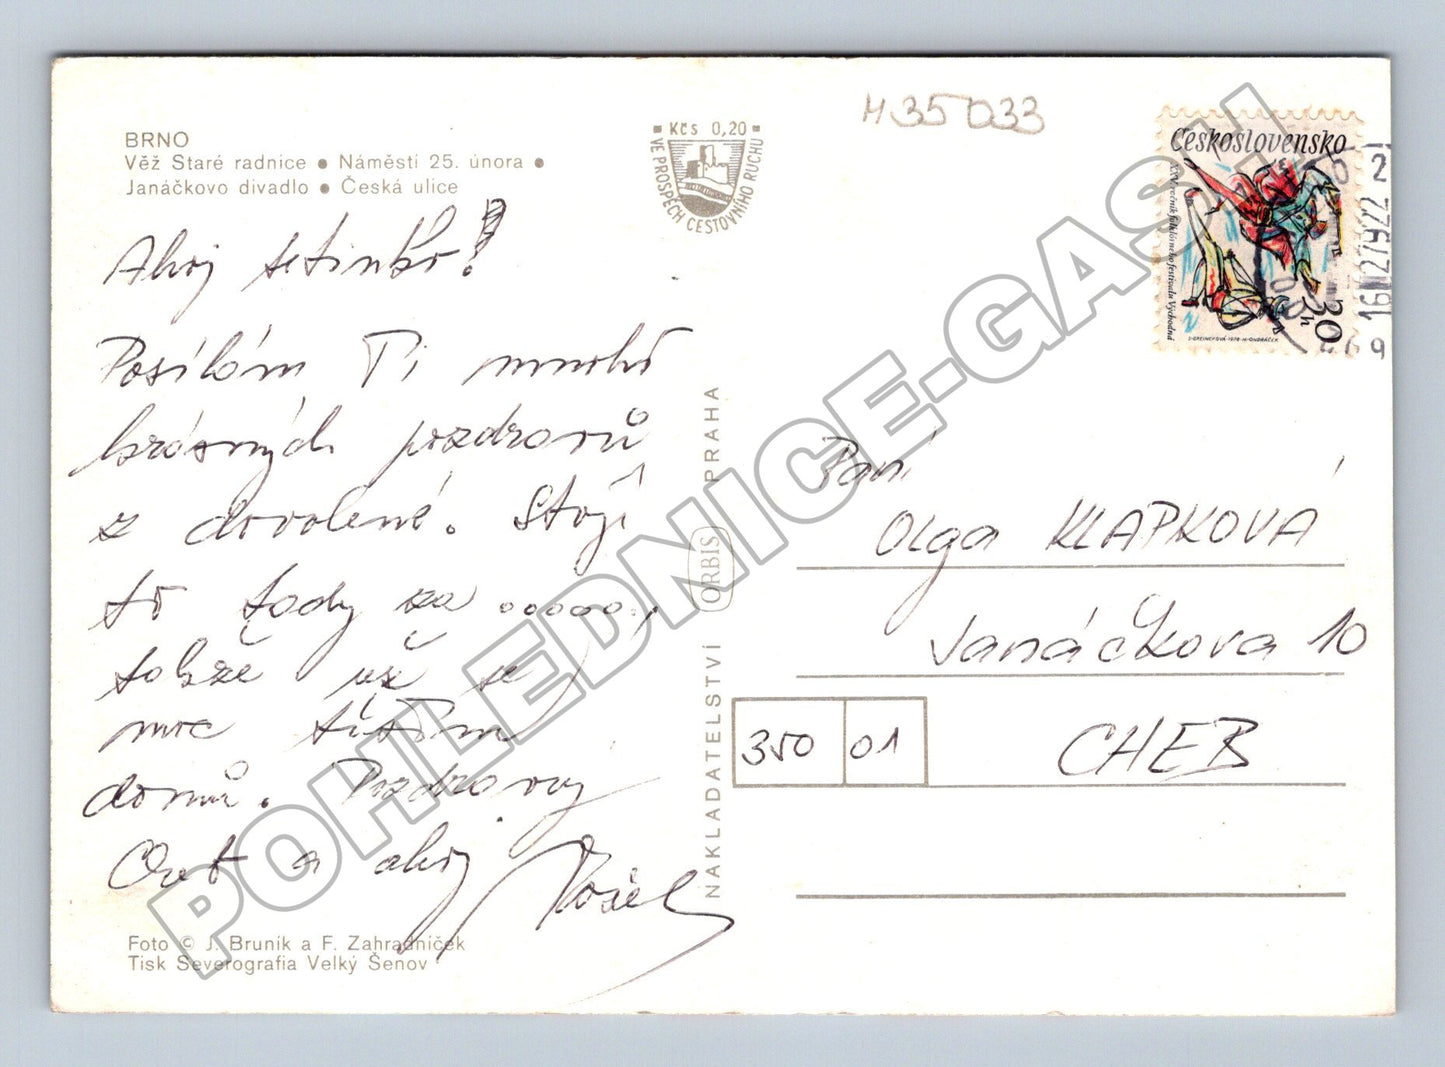 BRNO
Věž Staré radnice ● Náměstí 25. února ●
Janáčkovo divadlo ● Česká ulice
Kčs 0,20
VE PROSPĚCH CESTOVNÍHO RUCHU
M 35 033
Československo
XXV. ročník folklórneho festivalu Východná
30 h
1978
16
27922 2
Ahoj tetinko!
Posílám Ti mnoho
krásných pozdravů
z dovolené. Stojí
to tady za ......,
takže už se
moc těším
domů. Pozdravuj
a ahoj
NAKLADATELSTVÍ ORBIS PRAHA
Paní
Olga KLAPKOVÁ
Janáčkova 10
350 01 CHEB
Foto © J. Bruník a F. Zahradníček
Tisk Severografia Velký Šenov
POHLEDNICE-GASH